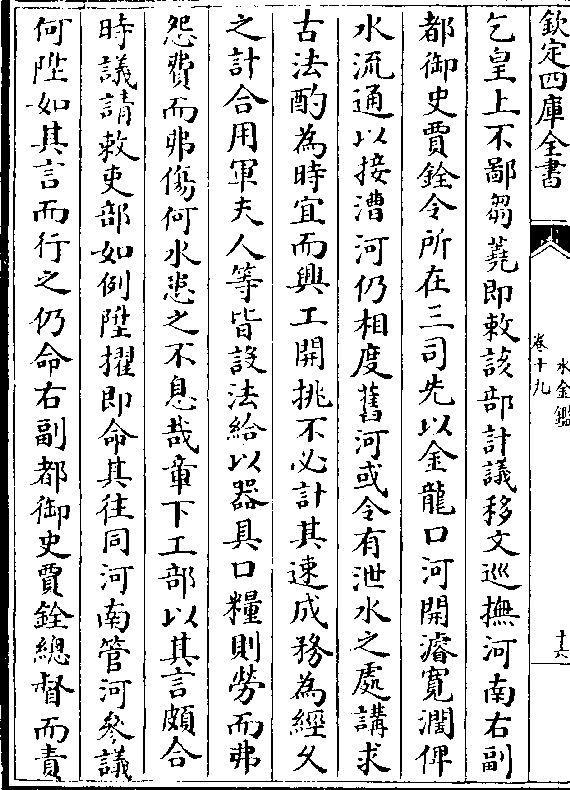 欽定四庫全書
水金鑑
卷十九
十六
乞皇上不鄙芻蕘即敕該部計議移文巡撫河南右副
都御史賈銓令所在三司先以金龍口河開濬寬濶俾
水流通以接漕河仍相度舊河或令有泄水之處講求
古法酌為時宜而興工開挑不必計其速成務為經久
之計合用軍夫人等皆設法給以器具口糧則勞而弗
怨費而弗傷何水患之不息哉章下工部以其言頗合
時議請敕吏部如例陞擢即命其往同河南管河參議
何陞如其言而行之仍命右副都御史賈銓總督而責